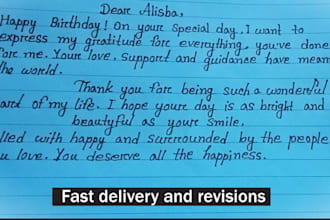 Dear Alisba,
Happy Birthday! On your special day, I want to
express my gratitude for everything, you've done
for me. Your love, support and guidance have mean
the world.
Thank you for being such a wonderful
art of my life. I hope your day is as bright and
beautyful as your smile.
lled with happy and surrounded by the people
u love. You deserve all the happiness.
Fast delivery and revisions